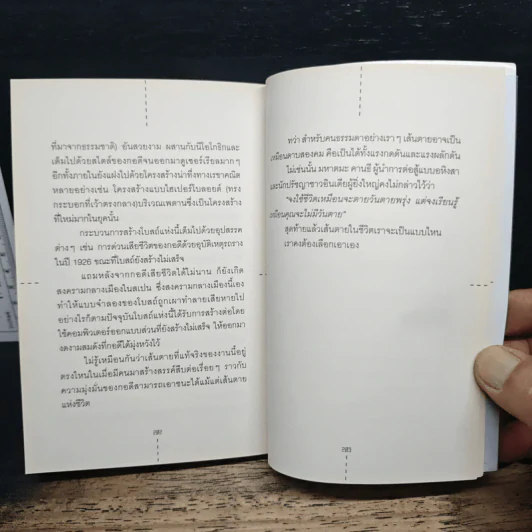 ที่มาจากธรรมชาติ) อันสวยงาม ผสานกับนีโอโกธิกและ
เต็มไปด้วยสไตล์ของกอดีจนออกมาดูเซอร์เรียลมากๆ
อีกทั้งภายในยังแฝงไปด้วยโครงสร้างน่าทึ่งทางเรขาคณิต
หลายอย่างเช่น โครงสร้างแบบไฮเปอร์โบลอยด์ (ทรง
กระบอกที่เว้าตรงกลาง) บริเวณเพดานซึ่งเป็นโครงสร้าง
ที่ใหม่มากในยุคนั้น
กระบวนการสร้างโบสถ์แห่งนี้เต็มไปด้วยอุปสรรค
ต่างๆ เช่น การด่วนเสียชีวิตของกอดีด้วยอุบัติเหตุรถราง
ในปี 1926 ขณะที่โบสถ์ยังสร้างไม่เสร็จ
แถมหลังจากกอดีเสียชีวิตได้ไม่นาน ก็ยังเกิด
สงครามกลางเมืองในสเปน ซึ่งสงครามกลางเมืองนี้เอง
ทำให้แบบจำลองของโบสถ์ถูกเผาทำลายเสียหายไป
อย่างไรก็ตามปัจจุบันโบสถ์แห่งนี้ได้รับการสร้างต่อโดย
ใช้คอมพิวเตอร์ออกแบบส่วนที่ยังสร้างไม่เสร็จ ให้ออกมา
งดงามสมดังที่กอดีได้มุ่งหวังไว้
ไม่รู้เหมือนกันว่าเส้นตายที่แท้จริงของงานนี้อยู่
ตรงไหนในเมื่อมีคนมาสร้างสรรค์สืบต่อเรื่อยๆ ราวกับ
ความมุ่งมั่นของกอดีสามารถเอาชนะได้แม้แต่เส้นตาย
แห่งชีวิต
202
ทว่า สำหรับคนธรรมดาอย่างเราๆ เส้นตายอาจเป็น
เหมือนดาบสองคม คือเป็นได้ทั้งแรงกดดันและแรงผลักดัน
ไม่เช่นนั้น มหาตมะ คานธี ผู้นำการต่อสู้แบบอหิงสา
และนักปรัชญาชาวอินเดียผู้ยิ่งใหญ่คงไม่กล่าวไว้ว่า
"จงใช้ชีวิตเหมือนจะตายวันตายพรุ่ง แต่จงเรียนรู้
เหมือนคุณจะไม่มีวันตาย"
สุดท้ายแล้วเส้นตายในชีวิตเราจะเป็นแบบไหน
เราคงต้องเลือกเอาเอง
203